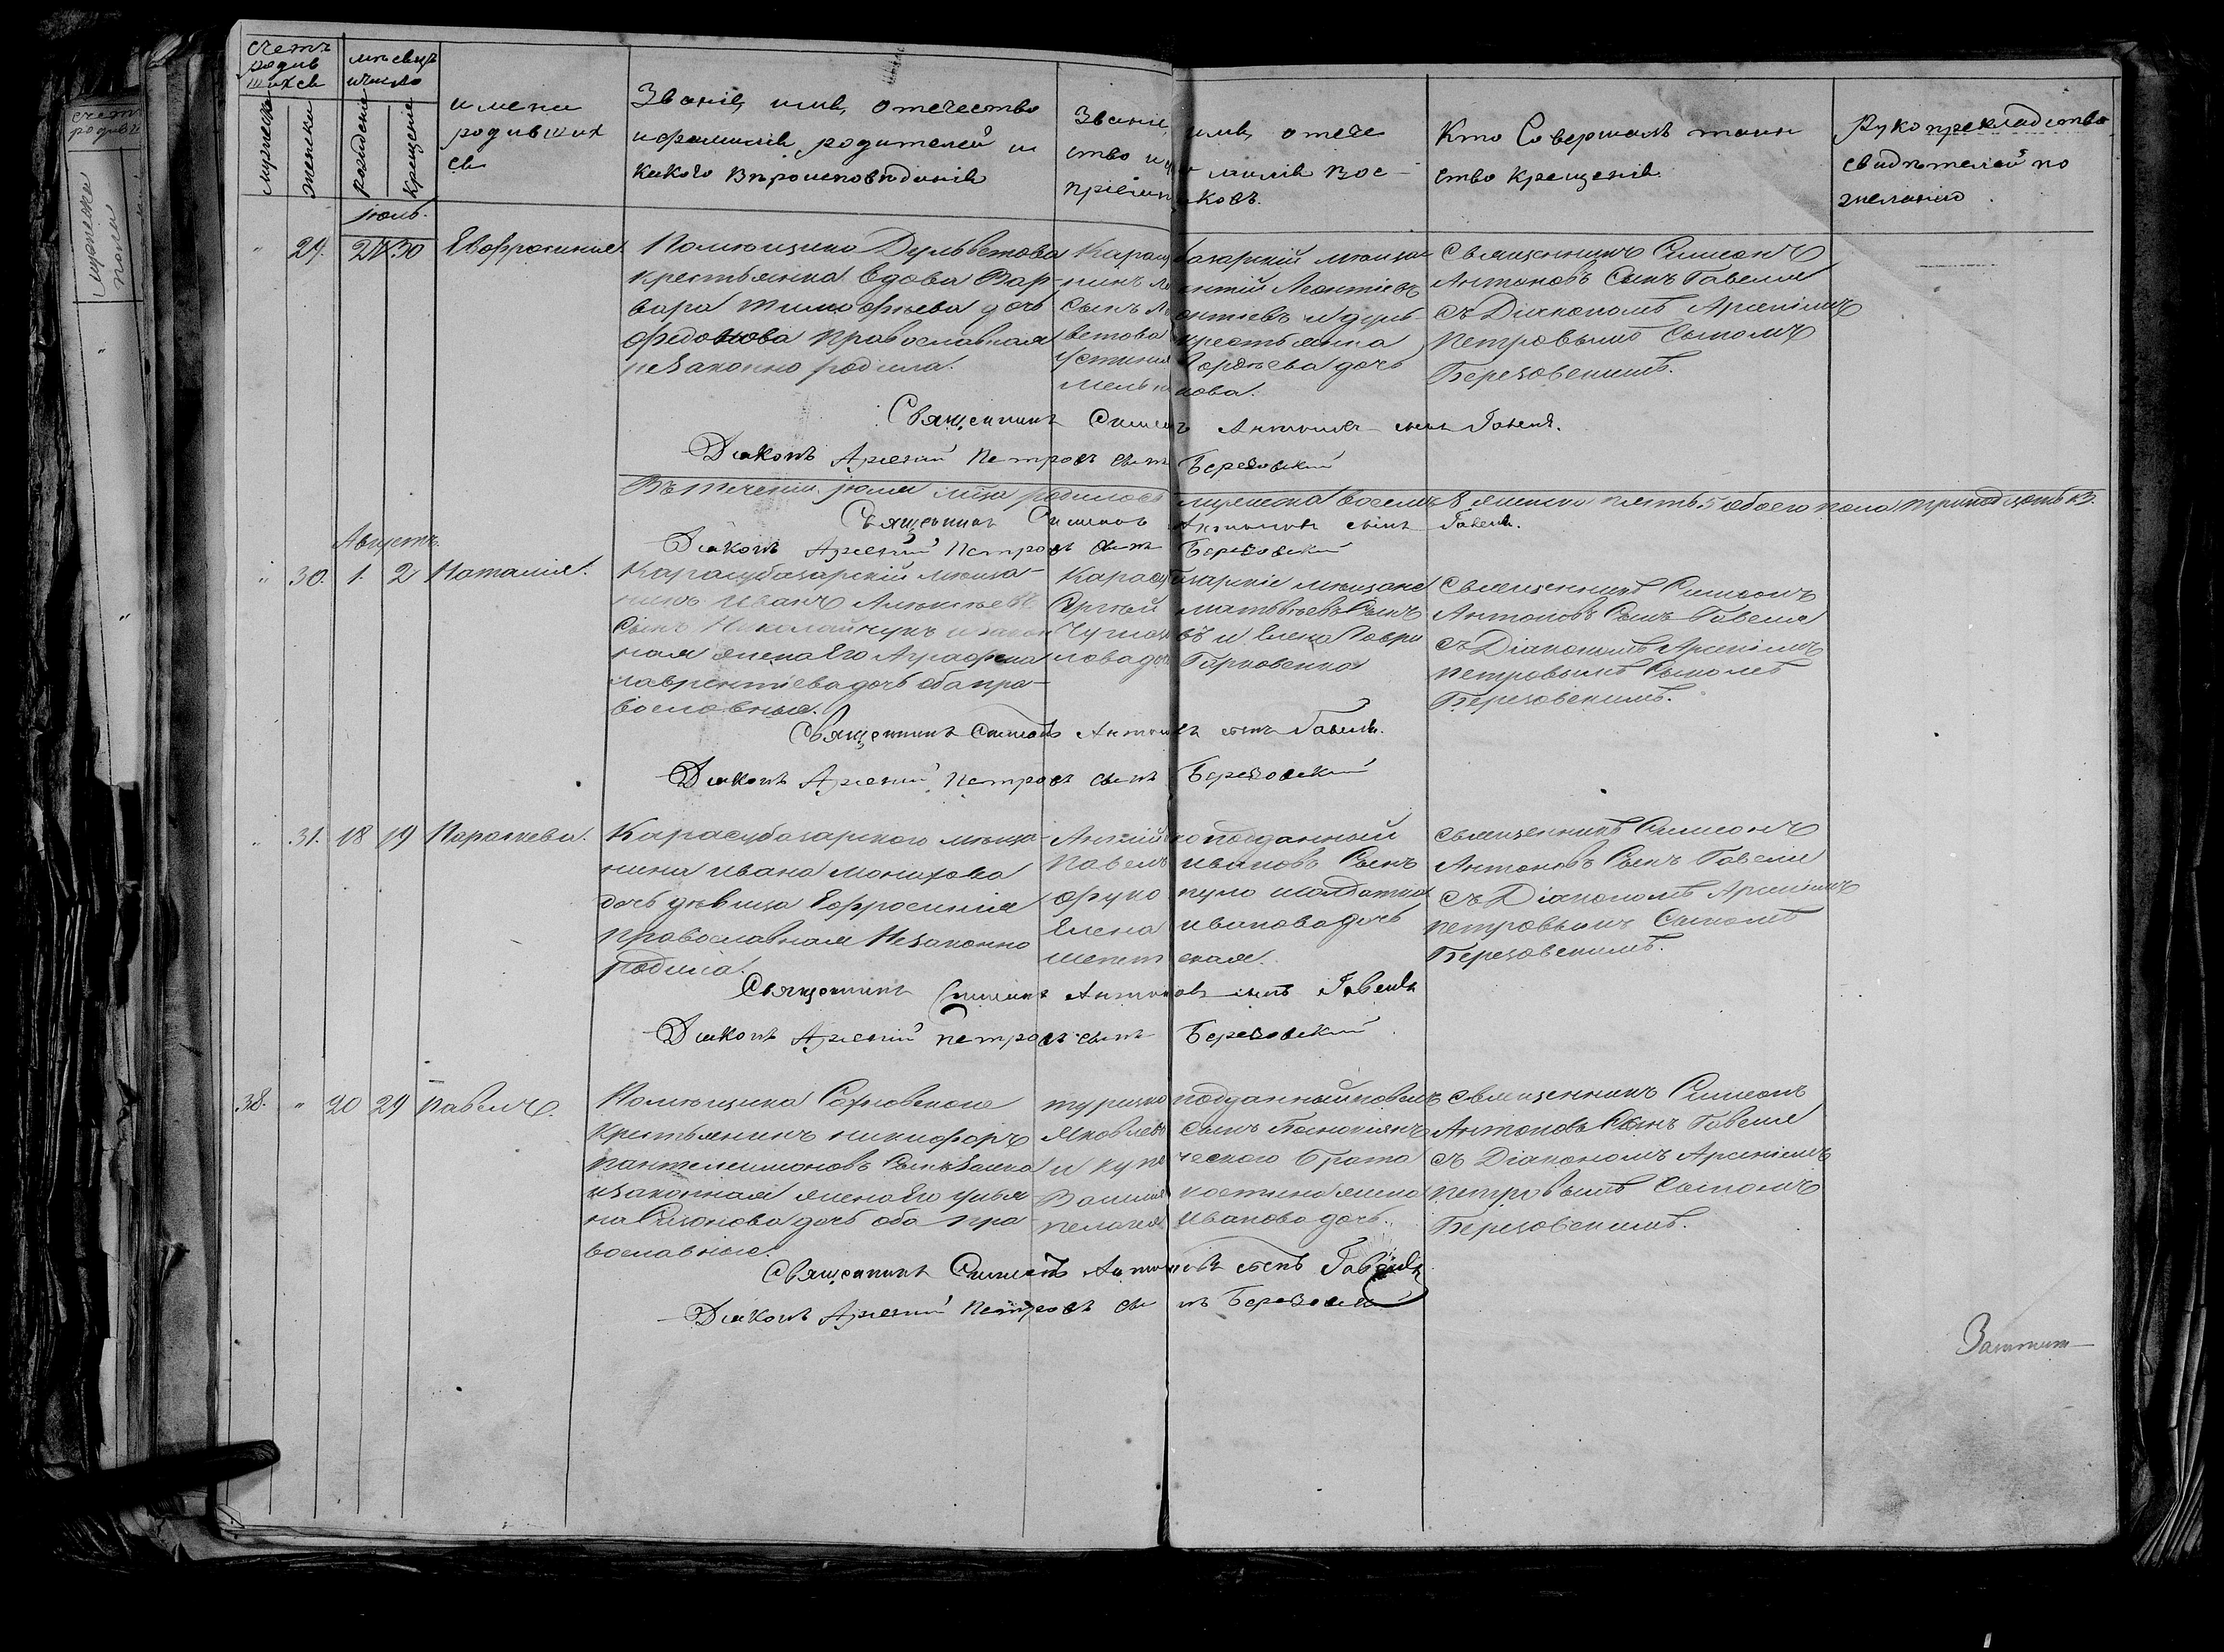 счетъ родив шихся
мужеска
женска
мѣсяцъ и число
рожденія
крещенія
имена родивших ся
Званіе, имя, отечество
и фамилія родителей и
какого вѣроисповѣданія
Званіе, имя, отече
ство и фамилія вос-
пріемниковъ.
Кто Совершалъ таин
ство крещенія.
Рукоприкладство
свидѣтелей по
желанію
Іюль.
" 29. 30 Евфросинія.
Помѣщика
крестьянка вдова Вар-
вара Тимофѣева дочь
православная
незаконно родила.
Карасубазарскій мѣща-
нинъ Леонтій Леонтіевъ
Сынъ
крестьянка
Устинія дочь
Священникъ Симеонъ
Антоновъ Сынъ Гавеля
съ Діакономъ Арсеніемъ
Петровымъ Сыномъ
Березовскимъ.
Священникъ Симеонъ Антоновъ сынъ Гавеля.
Діаконъ Арсеній Петровъ сынъ Березовскій
Въ теченіи іюля м-ца родилось мужеска восемь 8 женска пять 5 обоего пола тринадцать 13.
Священникъ Симеонъ Антоновъ сынъ Гавеля.
Діаконъ Арсеній Петровъ сынъ Березовскій
Августъ.
" 30. 1. 2 Наталія.
Карасубазарскій мѣща-
нинъ Иванъ Алексѣевъ
Сынъ Николайчукъ и закон
ная жена Его Аграфена
Лаврентіева дочь оба пра-
вославные.
Карасубазарскіе мѣщане
Сергѣй Матвѣевъ Сынъ
и Елена Гаври
лова дочь
Священникъ Симеонъ
Антоновъ Сынъ Гавеля
съ Діакономъ Арсеніемъ
Петровымъ Сыномъ
Березовскимъ.
Священникъ Симеонъ Антоновъ сынъ Гавеля.
Діаконъ Арсеній Петровъ сынъ Березовскій
" 31. 18 19 Параскева.
Карасубазарского мѣща-
нина Ивана Монахова
дочь дѣвица Евфросинія
православная Незаконно
родила.
подданный
Павелъ Ивановъ Сынъ
солдатка
Елена Иванова дочь
Священникъ Симеонъ
Антоновъ Сынъ Гавеля
съ Діакономъ Арсеніемъ
Петровымъ Сыномъ
Березовскимъ.
Священникъ Симеонъ Антоновъ сынъ Гавеля
Діаконъ Арсеній Петровъ сынъ Березовскій
38. " 20 29 Павелъ.
Помѣщика
крестьянинъ Никифоръ
Пантелеимоновъ Сынъ
и законная жена Его Улья
на дочь оба пра
вославные.
Турецко подданный Павелъ
Яковлевъ Сынъ
и купеческого брата
жена
Пелагея Иванова дочь.
Священникъ Симеонъ
Антоновъ Сынъ Гавеля
съ Діакономъ Арсеніемъ
Петровымъ Сыномъ
Березовскимъ.
Священникъ Симеонъ Антоновъ сынъ Гавеля
Діаконъ Арсеній Петровъ сынъ Березовскій